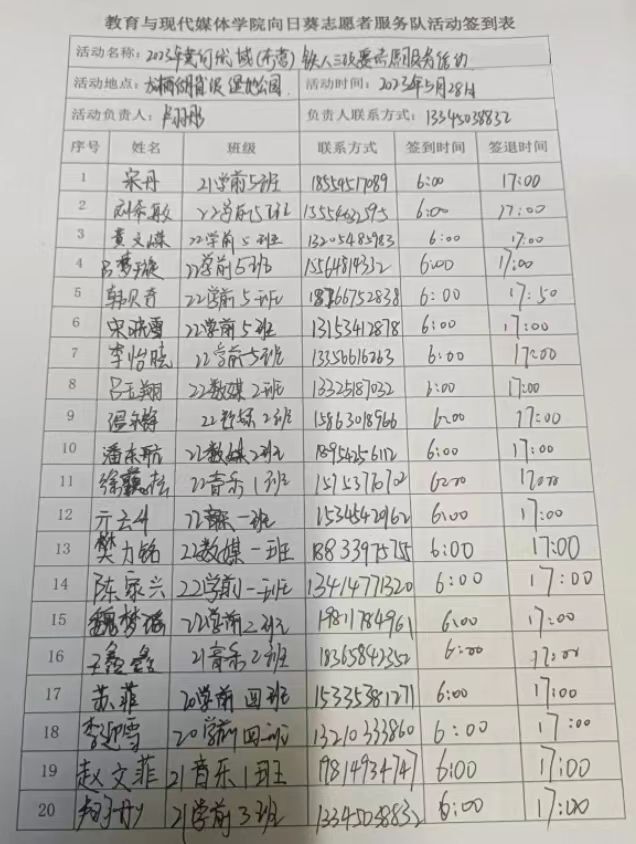 教育与现代媒体学院向日葵志愿者服务队活动签到表
活动名称：2023年黄河流域(东营)铁人三项赛志愿服务活动
活动地点： 湿地公园 活动时间：2023年5月28日
活动负责人： 负责人联系方式：13345038832
序号 姓名 班级 联系方式 签到时间 签退时间
1 宋丹 21学前5班 18554517089 6:00 17:00
2 22学前5班 13554632595 6:00 17:00
3 黄文媒 22学前5班 13205485983 6:00 17:00
4 吕梦璇 22学前5班 15564814332 6:00 17:00
5 韩贝奇 22学前5班 18366752838 6:00 17:50
6 宋 雪 22学前5班 13153412878 6:00 17:00
7 李怡晓 22学前5班 13356616263 6:00 17:00
8 吕玉翔 22数媒2班 13325187032 6:00 17:00
9 22数媒2班 15863018966 6:00 17:00
10 潘东航 22数媒2班 18954256112 6:00 17:00
11 徐 松 22音乐1班 6:00 17:00
12 亓云升 22音乐一班 1534542962 6:00 17:00
13 樊力铭 22数媒一班 18833975755 6:00 17:00
14 陈家兴 22学前一班 13414771320 6:00 17:00
15 魏梦瑶 22学前2班 19811784961 6:00 17:00
16 王鑫鑫 21音乐2班 18365842352 6:00 17:00
17 苏菲 20学前四班 15335381271 6:00 17:00
18 李迎雪 20学前四班 13210333860 6:00 17:00
19 赵文菲 21音乐1班 19814934747 6:00 17:00
20 21学前3班 13345038832 6:00 17:00